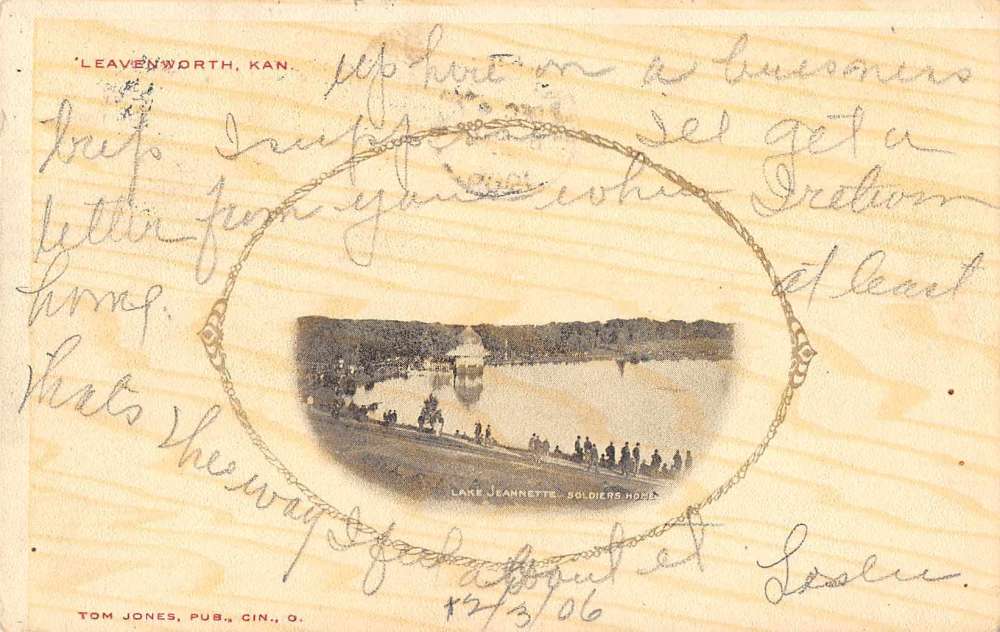 LEAVENWORTH, KAN.
up here on a buisness
trip I suppose Ill get a
letter from you when I return
home. at least
thats the way
I feel about it
Leslie.
12/3/06
LAKE JEANNETTE SOLDIERS HOME
TOM JONES, PUB., CIN., O.